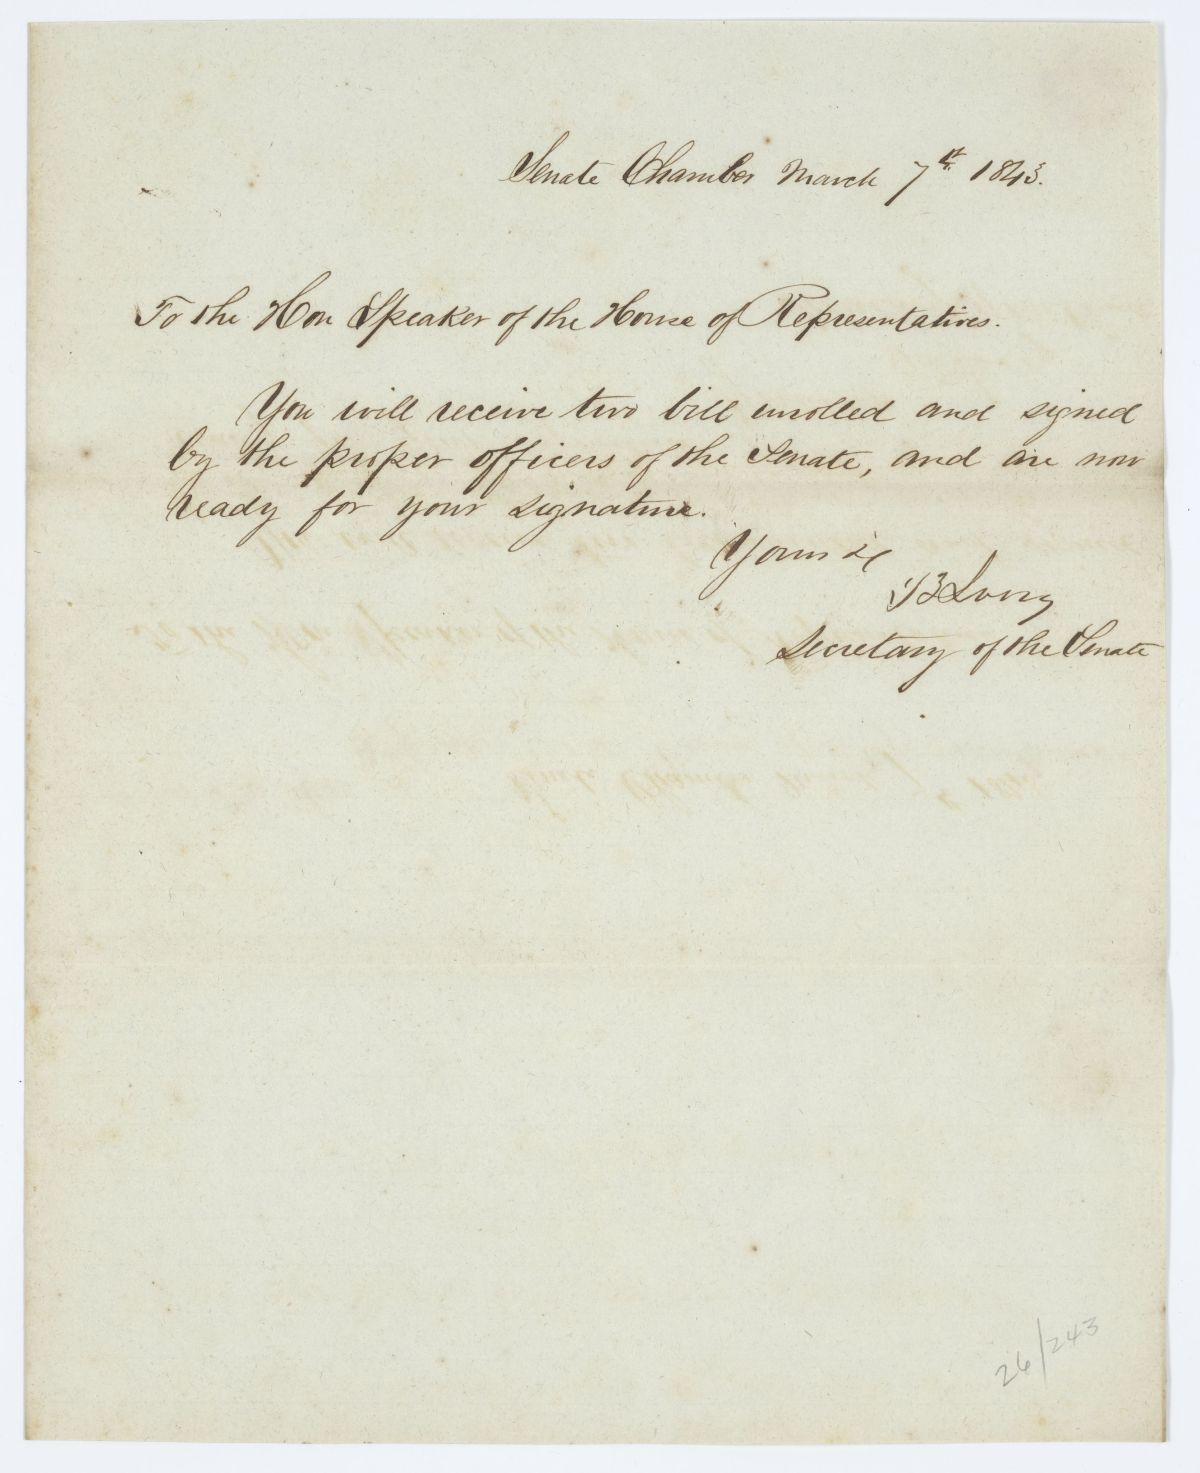 Senate Chamber March 7th 1843.
To the Hon Speaker of the House of Representatives.
You will receive two bill enrolled and signed
by the proper officers of the Senate, and are now
ready for your signature.
Yours &c
Secretary of the Senate
26/243